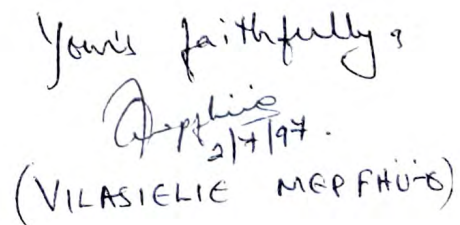 Yours faithfully,
Mepfhüo
2/7/97.
(VILASIELIE MEPFHÜ-O)